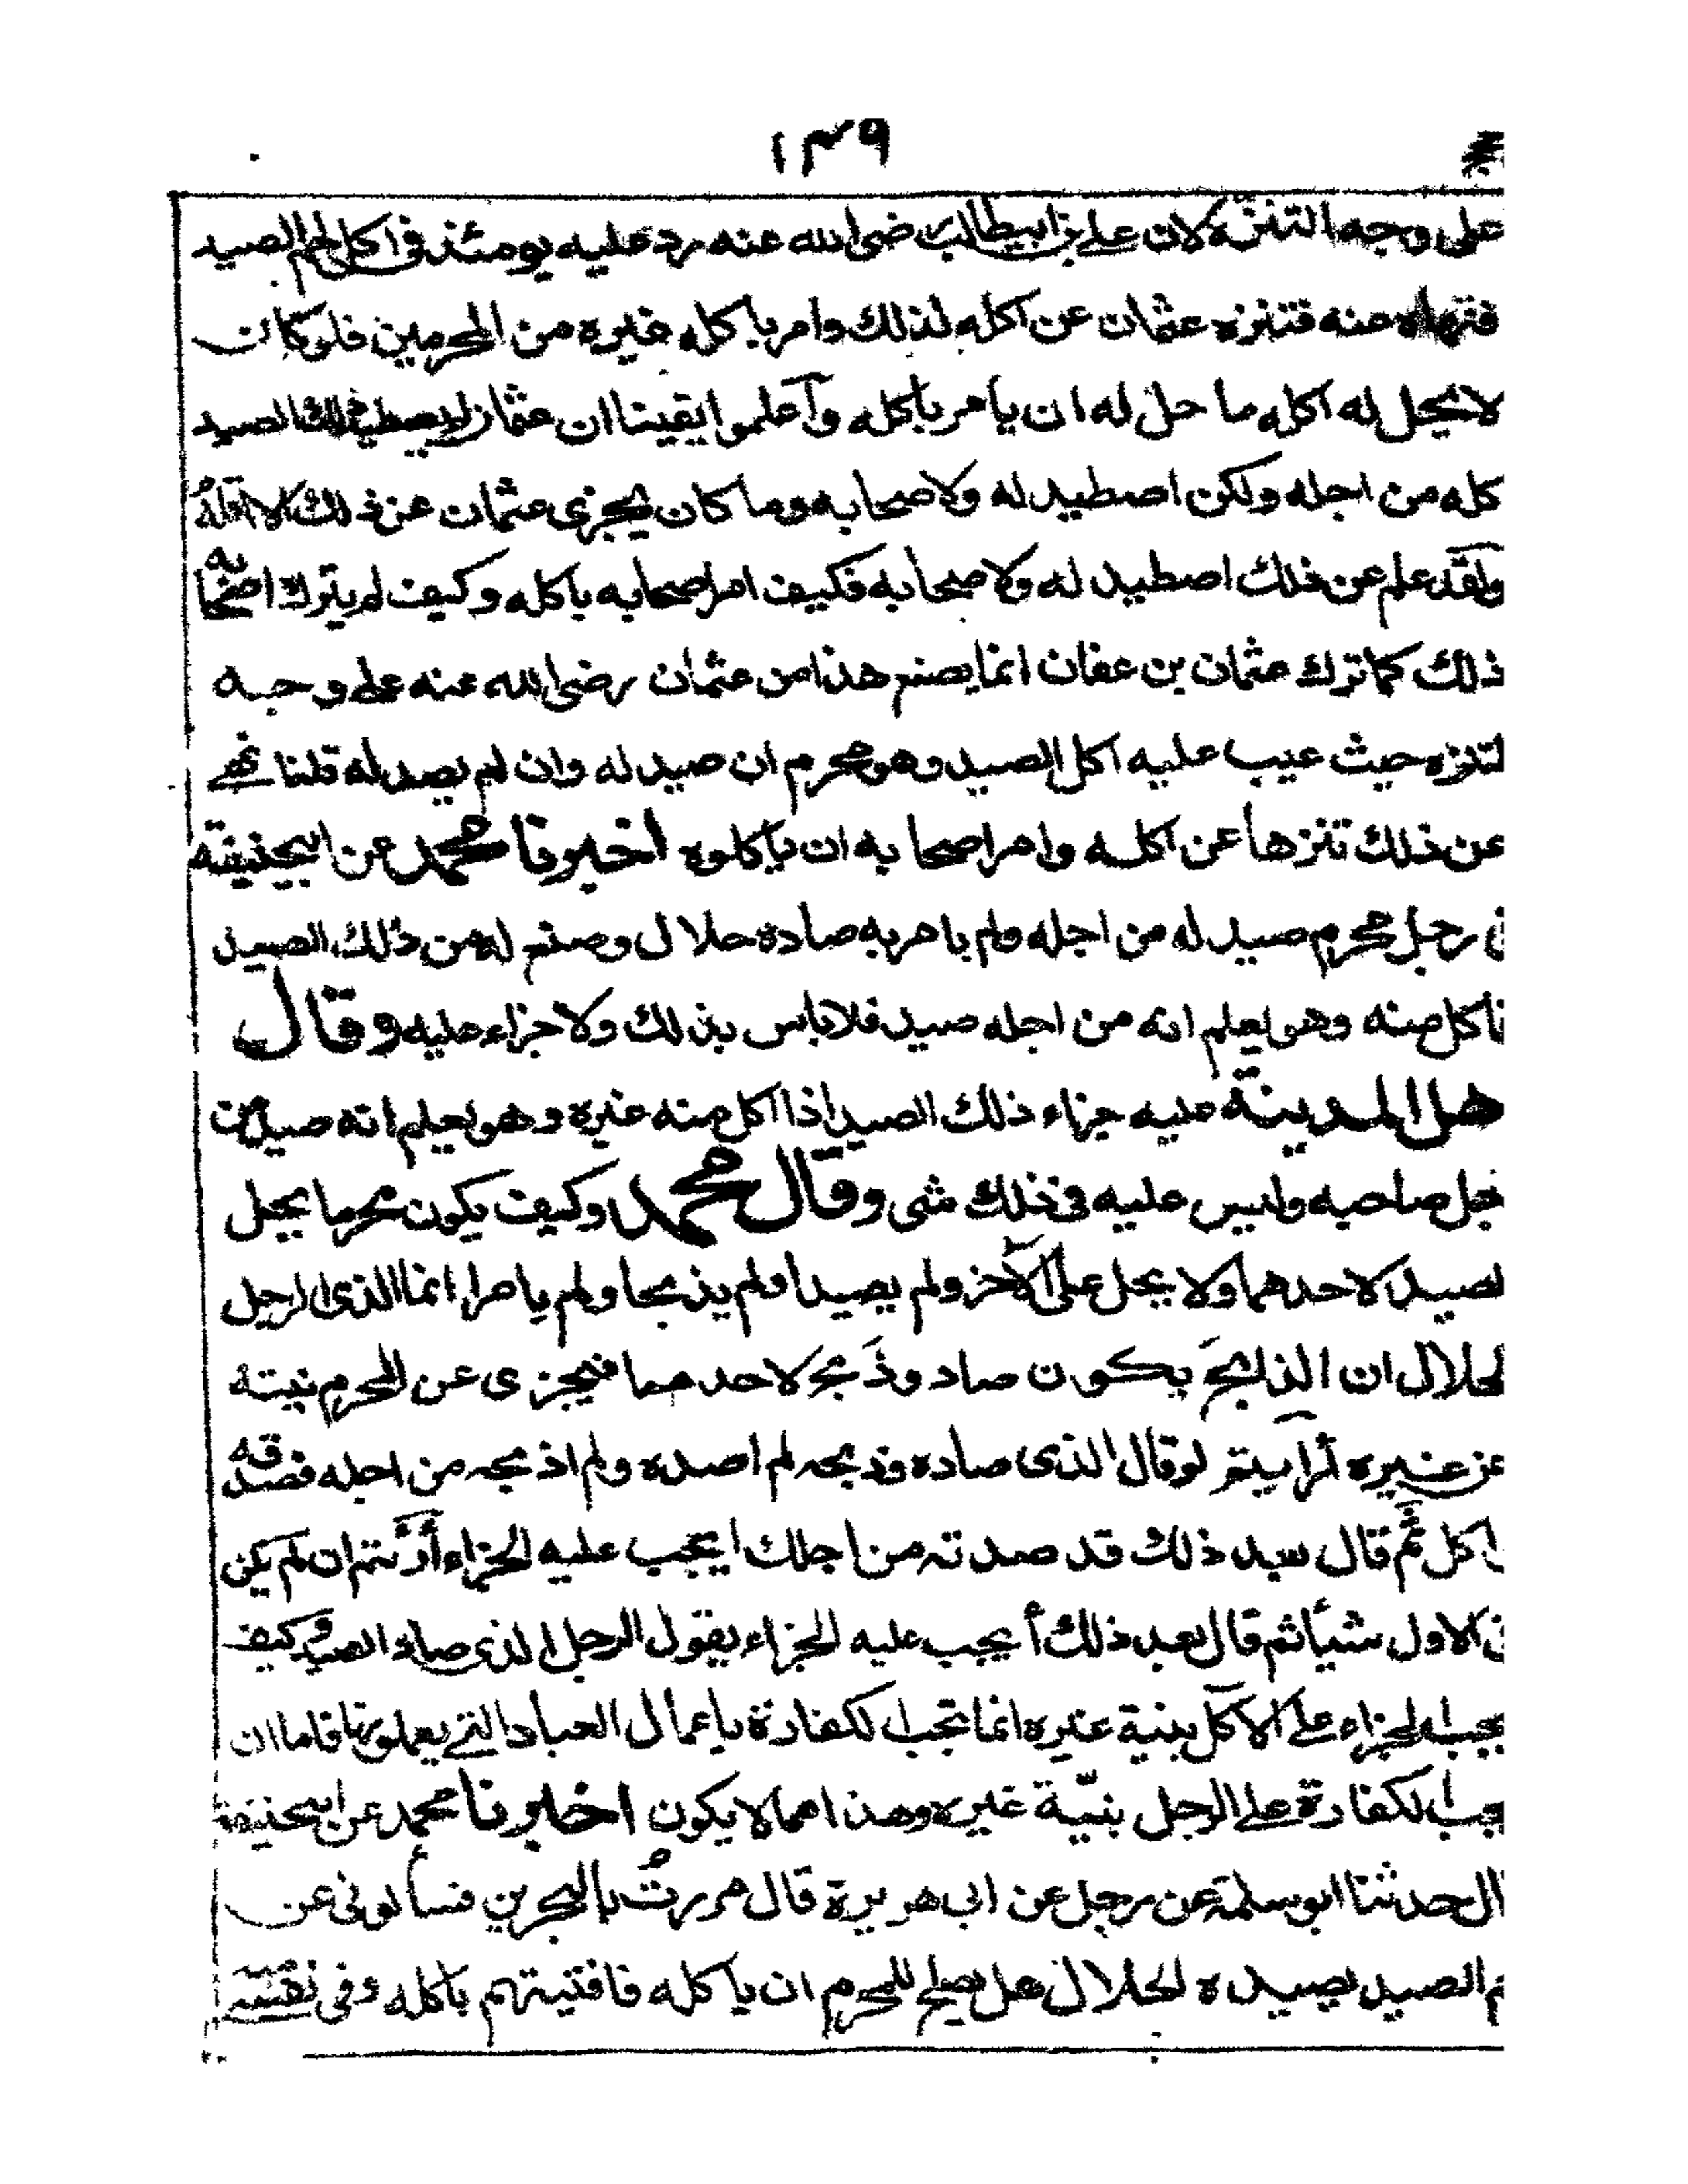 ١٣٩
على وجه التنزه لان علي بن ابيطالب رضى الله عنه رد عليه يومئذ في اكل لحم الصيد
فنهاه عنه فتنزه عثمان عن اكله لذلك وامر باكله غيره من المحرمين فلو كان
لا يحل له اكله ما حل له ان يامر باكله وآعلموا يقينا ان عثمان لم يصطد ذلك الصيد
كله من اجله ولكن اصطيد له ولاصحابه وما كان يجزى عثمان عن ذلك الا اقله
ولقد علم عن ذلك اصطيد له ولاصحابه فكيف امر اصحابه باكله وكيف لم يترك اصحابه
ذلك كما ترك عثمان بن عفان انما يصنع هذا من عثمان رضى الله عنه على وجه
لتنزه حيث عيب عليه اكل الصيد وهو محرم ان صيد له وان لم يصد له قلنا نهى
عن ذلك تنزها عن اكله وامر اصحابه ان ياكلوه اخبرنا محمد عن ابيحنيفة
ى رجل محرم صيد له من اجله ولم يامر به صاده حلال وصنع له من ذلك الصيد
فاكل منه وهو يعلم انه من اجله صيد فلا باس بذلك ولا جزاء عليه وقال
هل المدينة عليه جزاء ذلك الصيد اذا اكل منه غيره وهو يعلم انه صيد من
جل صاحبه وليس عليه في ذلك شى وقال محمد وكيف يكون محرما يحل
لصيد لاحدهما ولا يحل على الآخر ولم يصيدا ولم يذبحا ولم يامرا انما الذى الرجل
لحلال ان الذابح يكون صاد وذبح لاحدهما فيجزى عن المحرم نيته
عن غيره أرأيتم لو قال الذى صاده وذبحه لم اصده ولم اذبحه من اجله فصدقه
اكل ثم قال بعد ذلك قد صدته من اجلك ايجب عليه الجزاء أرأيتم ان لم يكن
ى الاول شيأ ثم قال بعد ذلك أيجب عليه الجزاء بقول الرجل الذى صاد الصيد وكيف
يجب الجزاء على الآكل بنية غيره انما تجب الكفارة باعمال العباد التي يعملونها فاما ان
يجب الكفارة على الرجل بنيّة غيره وهذا مما لا يكون اخبرنا محمد عن ابيحنيفة
ال حدثنا ابو سلمة عن رجل عن ابى هريرة قال مررت بالبحرين فسألونى عن
م الصيد يصيده الحلال هل يصلح للمحرم ان ياكله فافتيتهم باكله وفى نفسى